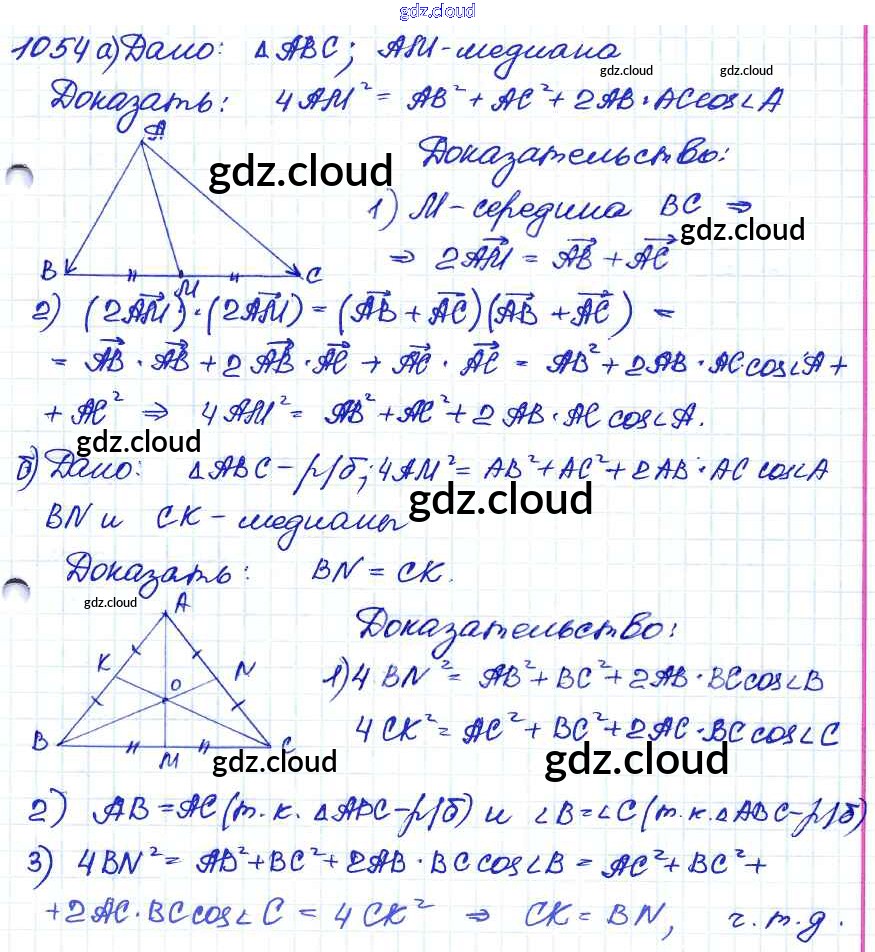 gdz.cloud
1054 а) Дано: △ABC; AM - медиана
gdz.cloud gdz.cloud
Доказать: 4AM² = AB² + AC² + 2AB · AC cos∠A
A
B
M
C
gdz.cloud
Доказательство:
1) M - середина BC ⇒
gdz.cloud
⇒ 2AM = AB + AC
2) (2AM) · (2AM) = (AB + AC)(AB + AC) =
= AB · AB + 2AB · AC + AC · AC = AB² + 2AB · AC cos∠A +
+ AC² ⇒ 4AM² = AB² + AC² + 2AB · AC cos∠A.
gdz.cloud
б) Дано: △ABC - р/б; 4AM² = AB² + AC² + 2AB · AC cos∠A
gdz.cloud
BN и CK - медианы
Доказать: BN = CK.
gdz.cloud
A
K
N
O
B
M
C
gdz.cloud
Доказательство:
1) 4BN² = AB² + BC² + 2AB · BC cos∠B
4CK² = AC² + BC² + 2AC · BC cos∠C
gdz.cloud
2) AB = AC (т.к. △ABC - р/б) и ∠B = ∠C (т.к. △ABC - р/б)
3) 4BN² = AB² + BC² + 2AB · BC cos∠B = AC² + BC² +
+ 2AC · BC cos∠C = 4CK² ⇒ CK = BN, ч.т.д.